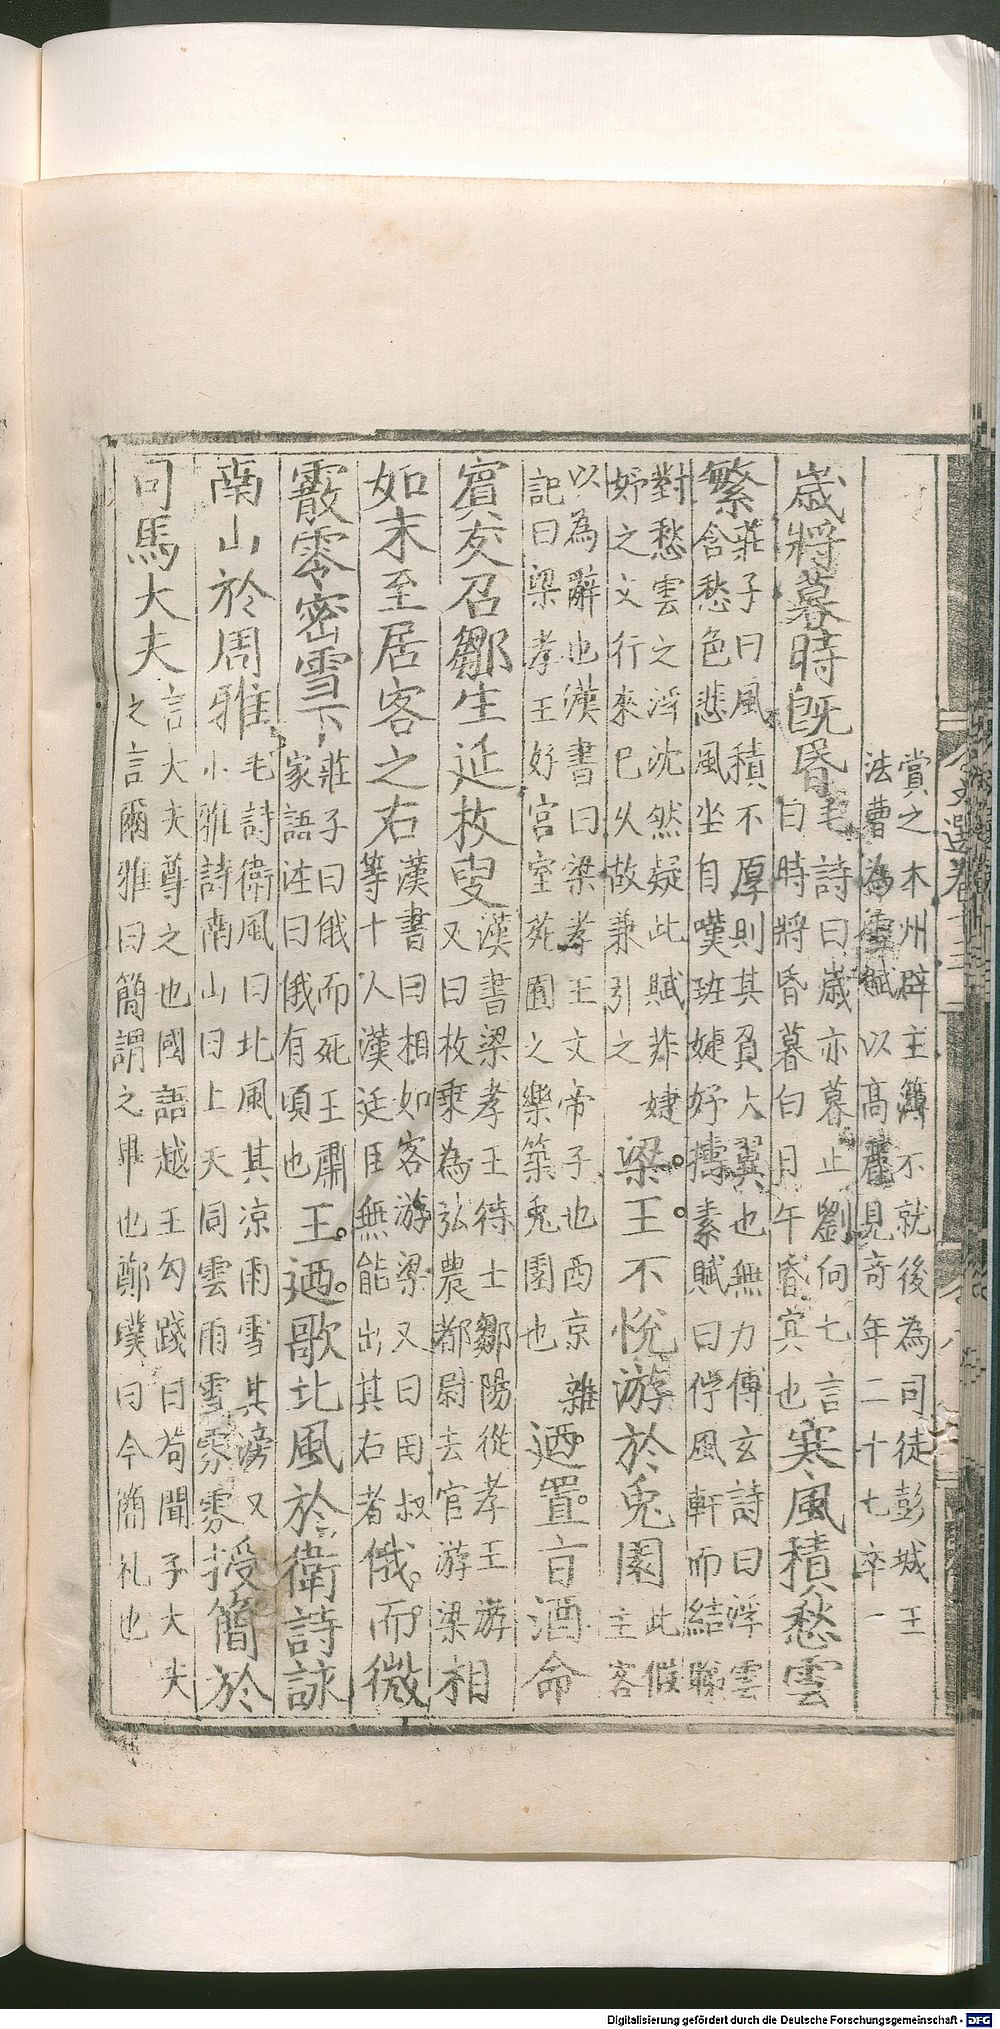 賞之本州辟主簿不就後為司徒彭城王
法曹為雪賦以高麗見奇年二十七卒一
歲將暮時旣昏
毛詩曰歲亦暮止劉向七言
曰時將昏暮白日午昏冥也
寒風積愁雲
繁
莊子曰風積不厚則其負大翼也無力傅玄詩曰浮雲
含愁色悲風坐自嘆班婕妤擣素賦曰佇風軒而結睇
對愁雲之浮沈然疑此賦非婕
妤之文行來已久故兼引之
梁王不悅游於兎園
此假
主客
以為辭也漢書曰梁孝王文帝子也西京雜
記曰梁孝王好宮室苑囿之樂築兎園也
迺置旨酒命
賓友召鄒生延枚叟
漢書梁孝王待士鄒陽從孝王游
又曰枚乘為弘農都尉去官游梁
相
如末至居客之右
漢書曰相如客游梁又曰田叔
等十人漢廷臣無能出其右者
俄而微
霰零密雪下
莊子曰俄而死王肅
家語注曰俄有頃也
王迺歌北風於衛詩詠
南山於周雅
毛詩衛風曰北風其凉雨雪其滂又
小雅詩南山曰上天同雲雨雪雰雰
授簡於
司馬大夫
言大夫尊之也國語越王勾踐曰苟聞子大夫
之言爾雅曰簡謂之畢也鄭璞曰今簡札也
文選卷十三
八
Digitalisierung gefördert durch die Deutsche Forschungsgemeinschaft - DFG